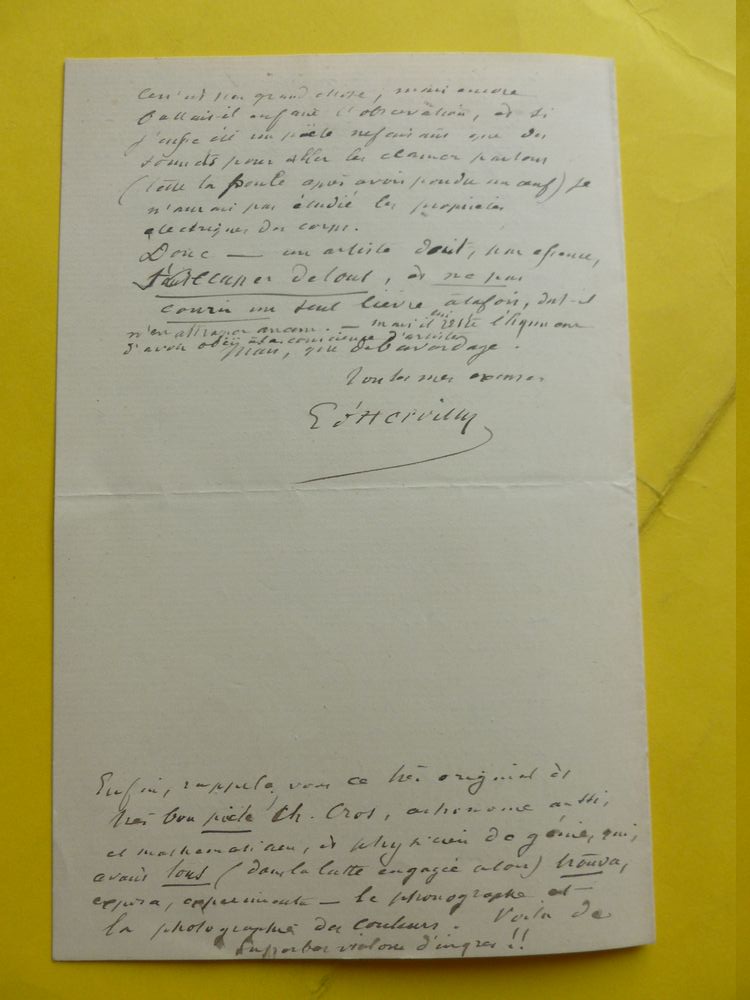 Ce n'est pas grand chose, mais encore
fallait-il enfant l'observation, et si
j'eusse été un poète ne faisant que des
sonnets pour aller les clamer partout
(telle la poule après avoir pondu un œuf) je
n'aurais pas étudié les propriétés
electriques des corps.
Donc — un artiste doit, par essence,
s'occuper de tout, et ne pas
courir un seul lièvre à la fois, dut-il
n'en attraper aucun. — mais il lui reste l'honneur
d'avoir obéi à la conscience d'artiste
que de bavardage.
Toutes mes excuses
E d'Hervilly
Enfin, rappelez vous ce très original et
très bon poète Ch. Cros, astronome aussi,
et mathematicien, et physicien de génie, qui,
avant tous (dans la lutte engagée alors) trouva,
exposa, experimenta — le phonographe et
la photographie des couleurs. Voilà de
superbes violons d'ingres !!